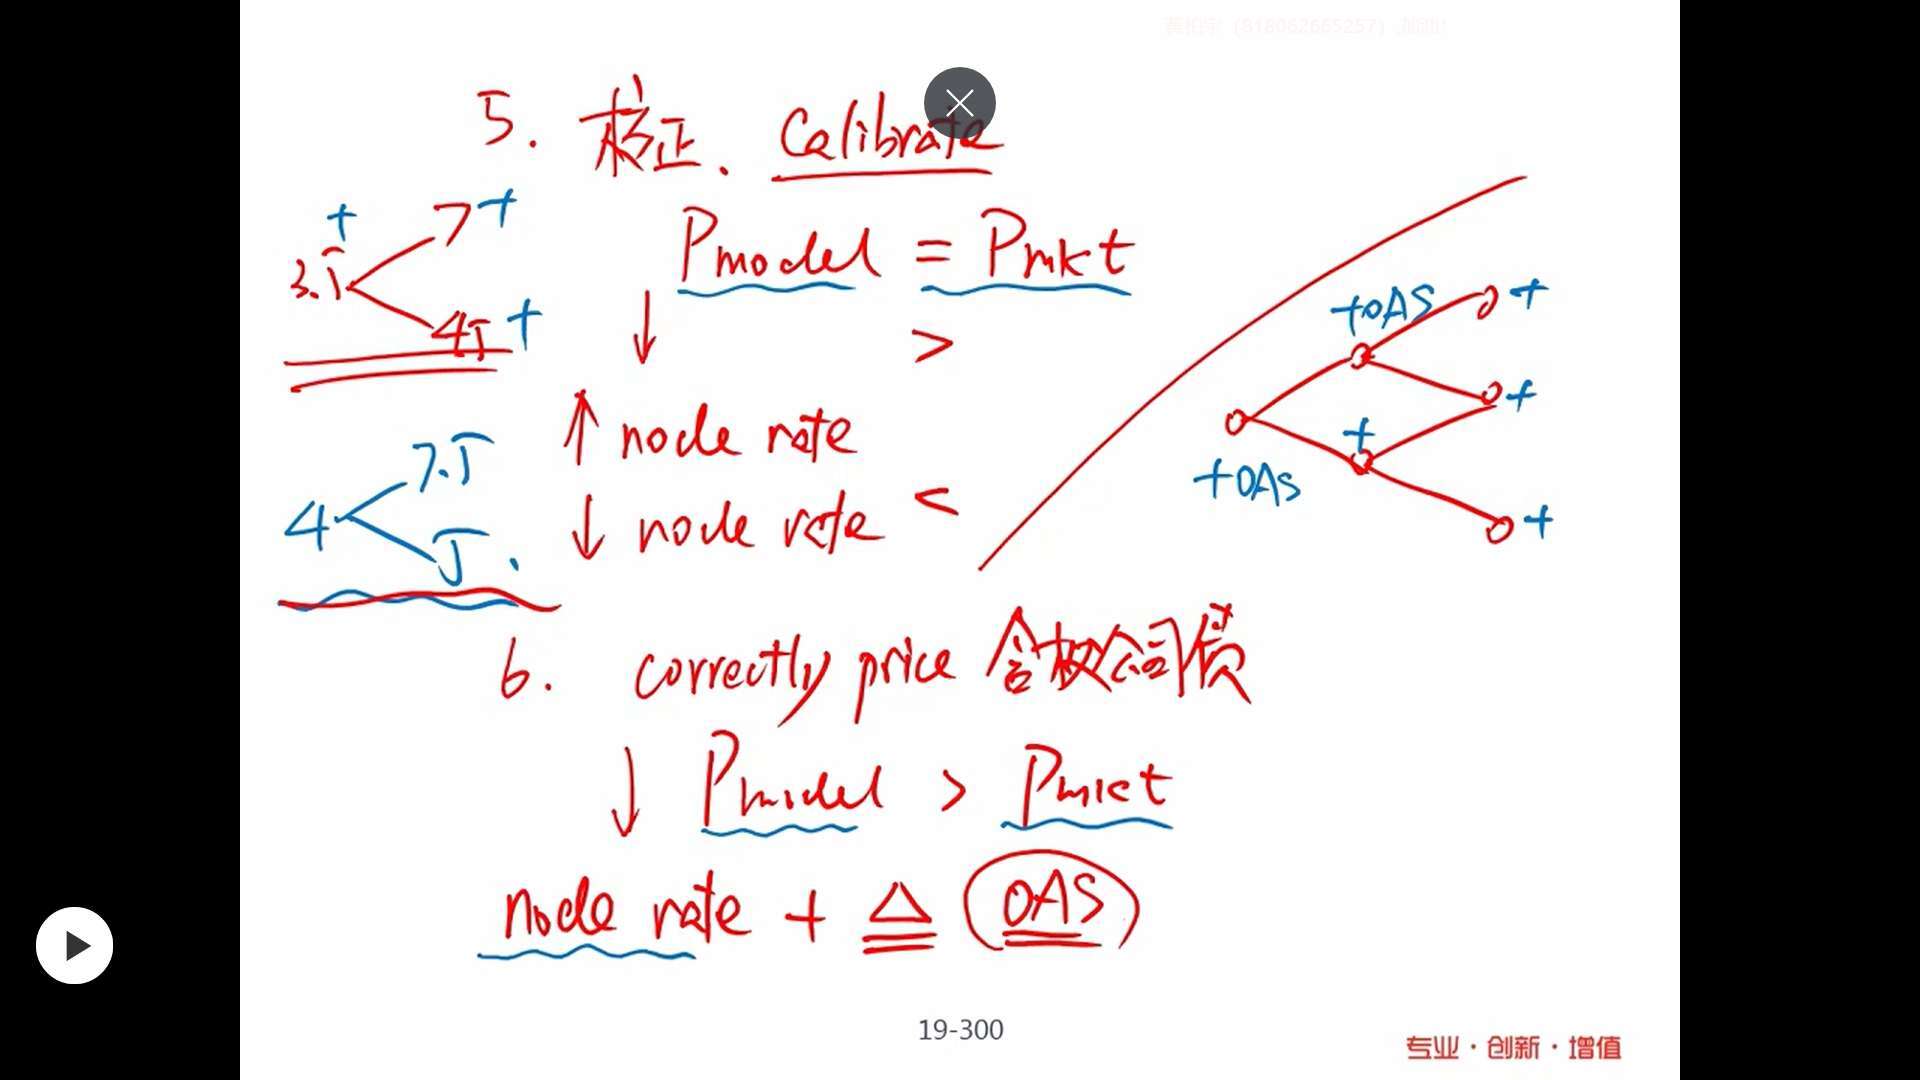 5. 校正. Calibrate
+
3.5
7+
45 +
Pmodel = Pmkt
↓ >
↑ node rate
↓ node rate <
4
7.5
5.
+OAS
+
+
+
+OAS
+
6. correctly price 含权公司债
↓ Pmodel > Pmkt
node rate + △ (OAS)
19-300
专业·创新·增值